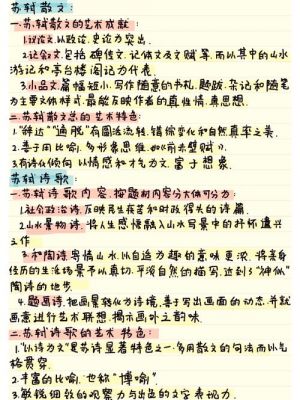 苏轼散文:
一.苏轼散文的艺术成就:
1.议论文,以政论.史论为突出.
2.记叙文,包括碑传文.记体文及文赋等.而以其中的山水
游记和亭台楼阁记为代表.
3.小品文,篇幅短小,写作随意的书札.题跋.杂记和随笔
为主要文体样式,最能反映作者的真性情,真思想.
二.苏轼散文总的艺术特色:
1."辞达""通脱"有圆活流转.错综变化和自然真率之美.
2.善于用比喻.多形象思维.如《前赤壁赋》.
3.有诗化倾向,以情感和才气为文.富于想象.
苏轼诗歌:
一.苏轼诗歌内容,按题材内容分大体可分为:
1.社会政治诗,反映民生疾苦和时政得失的诗篇.
2.山水景物诗,将人生感悟融入山水写景中的抒怀遣兴
之作
3.和陶诗寄情山水,以自适为趣的意味更浓,将亲身
经历的生活场景予以真切.平淡自然的描写,达到与"神似"
陶诗的地步.
4.题画诗,把画景转化为诗境,善于写出画面的动态,并就
画意进行艺术联想,揭示画外之韵味.
二.苏轼诗歌的艺术特色:
1."以诗为文"是苏诗显著特色之一.多用散文的句法而以气
格贯穿.
2.丰富的比喻,也称"博喻".
3.敏锐细致的观察力与出色的文字表现力.